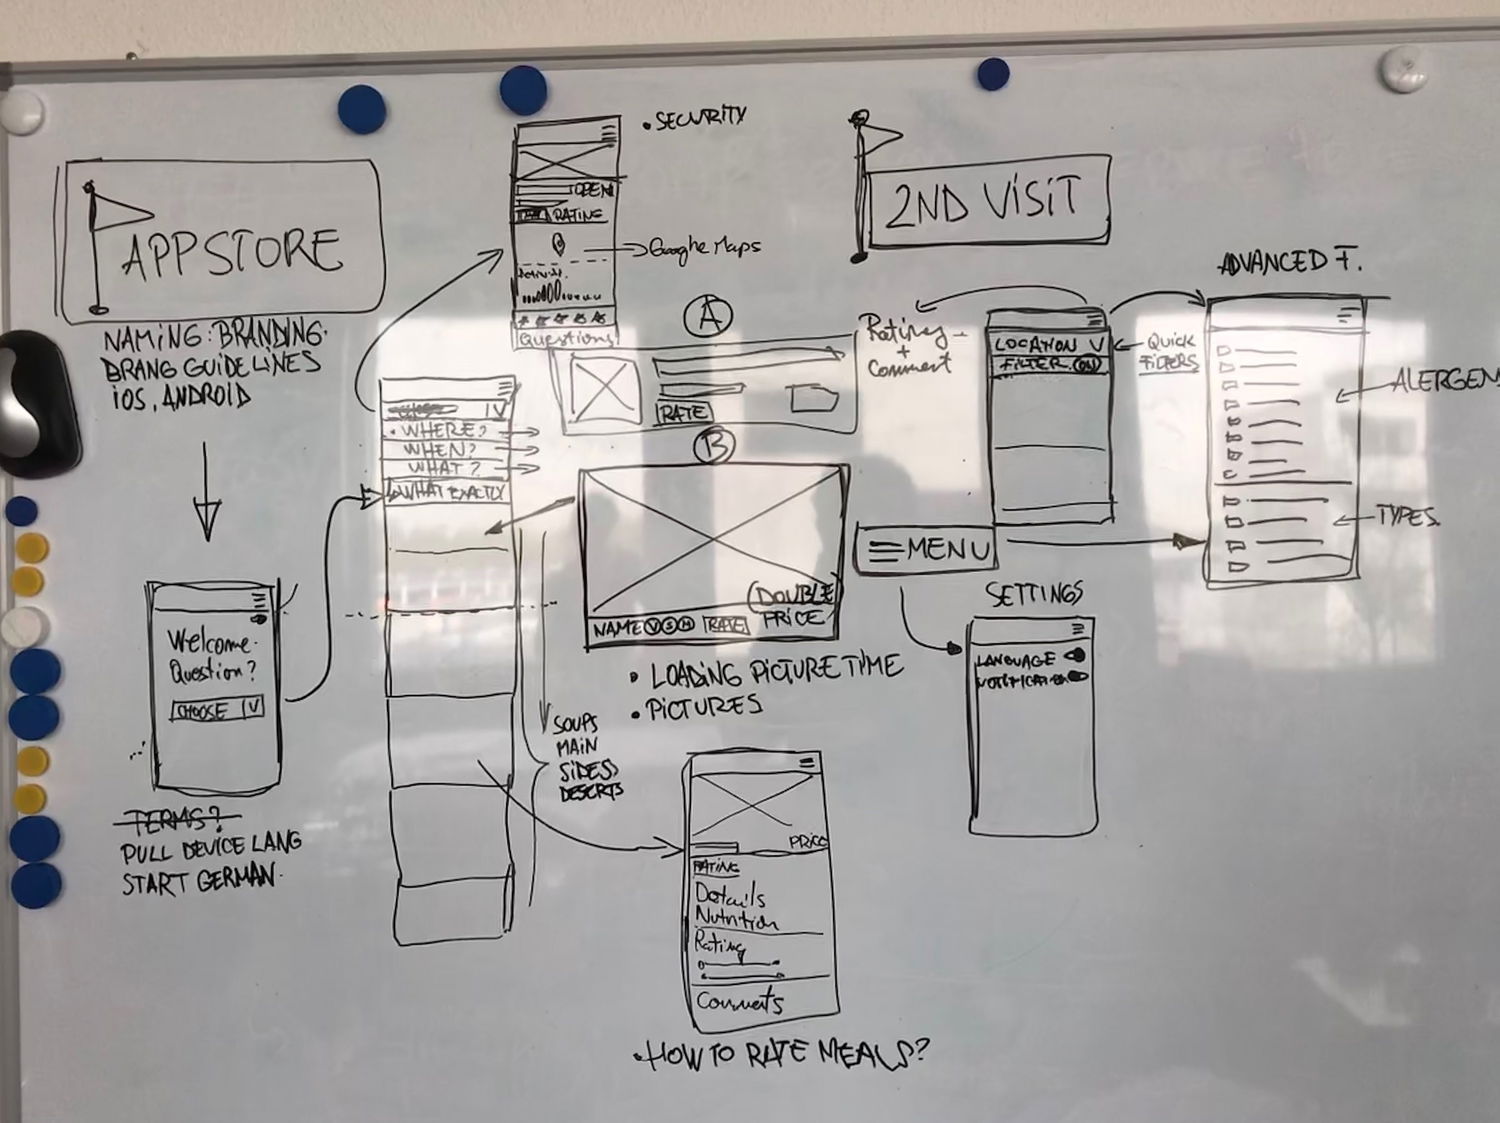 APPSTORE
NAMING: BRANDING.
BRANG GUIDELINES
iOS, ANDROID
Welcome.
Question?
CHOOSE V
TERMS?
PULL DEVICE LANG
START GERMAN.
SECURITY
OPEN
RATING
Google Maps
Questions
V
WHERE?
WHEN?
WHAT?
WHAT EXACTLY
A
RATE
B
DOUBLE
PRICE
NAME V S M RATE
LOADING PICTURE TIME
PICTURES
SOUPS
MAIN
SIDES
DESERTS
PRICE
RATING
Details
Nutrition
Rating
Comments
HOW TO RATE MEALS?
2ND VISIT
Rating
+
Comment
LOCATION V
FILTER ON
QUICK
FILTERS
MENU
SETTINGS
LANGUAGE
NOTIFICATION
ADVANCED F.
ALERGEN
TYPES